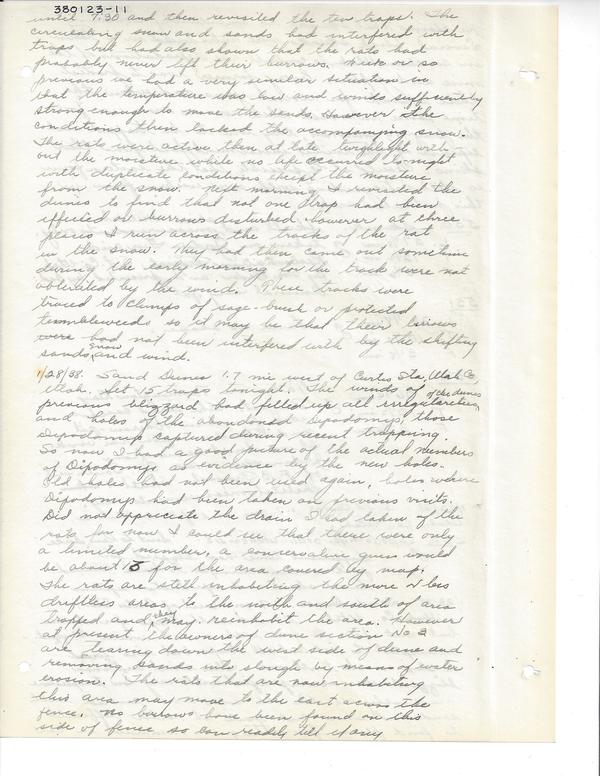 380123-11
until 7:30 and then revisited the two traps. The
circulating snow and sands had interfered with
traps but had also shown that the rats had
probably never left their burrows. Week or so
previous we had a very similar situation in
that the temperature was low and winds sufficiently
strong enough to move the sands. However the
conditions then lacked the accompanying snow.
The rats were active then at late twighlight with-
out the moisture while no life occured tonight
with duplicate conditions except the moisture
from the snow. Next morning I revisited the
dunes to find that not one trap had been
effected or burrows disturbed however at three
places I run across the tracks of the rat
in the snow. They had then came out sometime
during the early morning for the track were not
obliterated by the wind. These tracks were
traced to clumps of sage-brush or protected
tumbleweeds so it may be that their burrows
were had not been interfered with by the shifting
sands, snow and wind.
1/28/38. Sand Dunes 1.7 mi. west of Curtis Sta, Utah Co,
Utah. Set 15 traps tonight. The winds of
previous blizzard had filled up all irregularities of the dunes
and holes of the abandoned Dipodomys, those
Dipodomys captured during recent trapping.
So now I had a good picture of the actual numbers
of Dipodomys as evidence by the new holes.
Old holes had not been used again, holes where
Dipodomys had been taken on previous visits.
Did not appreciate the drain I had taken of the
rats for now I could see that there were only
a limited number, a conservative guess would
be about 15 for the area covered by map.
The rats are still inhabiting the more & less
driftless areas to the north and south of area
trapped and they may reinhabit the area. However
at present the owners of dune section No 2
are tearing down the west side of dune and
removing sands into slough by means of water
erosion. The rats that are now inhabiting
this area may move to the east across the
fence. No burrows have been found on this
side of fence so can readily tell if any